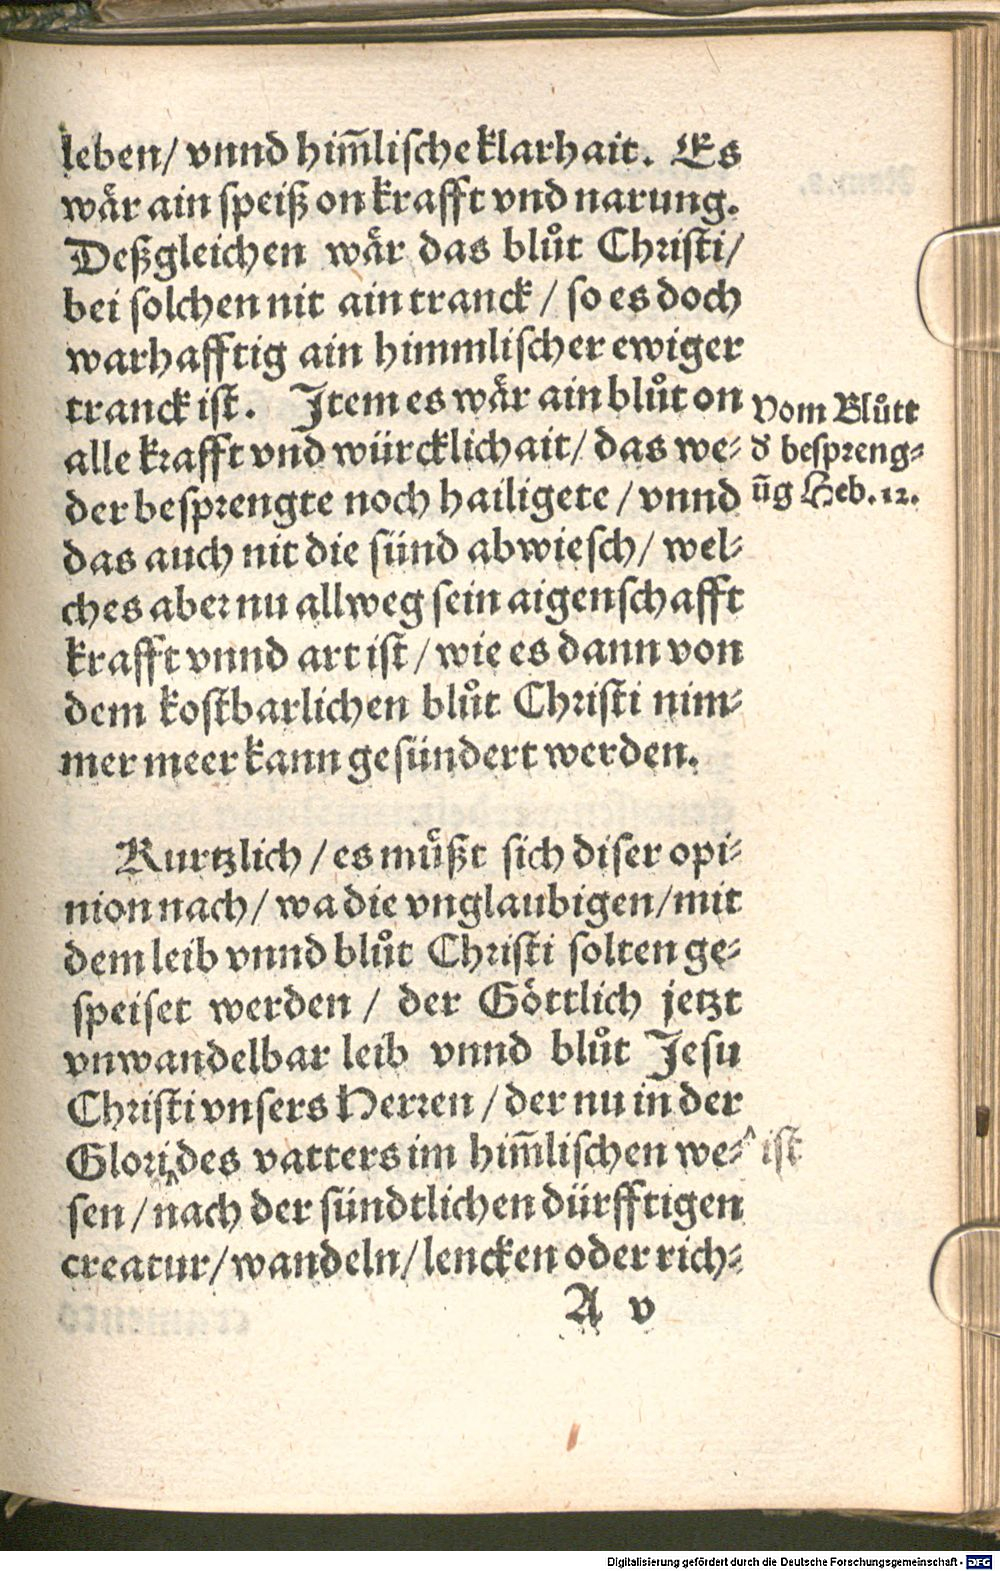 leben/ vnnd him̄lische klarhait. Es
wär ain speiß on krafft vnd narung.
Deßgleichen wär das blůt Christi/
bei solchen nit ain tranck / so es doch
warhafftig ain himmlischer ewiger
tranck ist. Item es wär ain blůt on
alle krafft vnd würcklichait/ das we⸗
der besprengte noch hailigete / vnnd
das auch nit die sünd abwiesch/ wel⸗
ches aber nu allweg sein aigenschafft
krafft vnnd art ist / wie es dann von
dem kostbarlichen blůt Christi nim⸗
mer meer kann gesündert werden.
Vom Blůtt
d' bespreng⸗
ūg Heb. 12.
Kurtzlich / es můßt sich diser opi⸗
nion nach/ wa die vnglaubigen/ mit
dem leib vnnd blůt Christi solten ge⸗
speiset werden / der Göttlich jetzt
vnwandelbar leib vnnd blůt Jesu
Christi vnsers Herren / der nu in der
Glori‸des vatters im him̄lischen we⸗ ^ ist
sen / nach der sündtlichen dürfftigen
creatur/ wandeln/ lencken oder rich⸗
A v
Digitalisierung gefördert durch die Deutsche Forschungsgemeinschaft - DFG